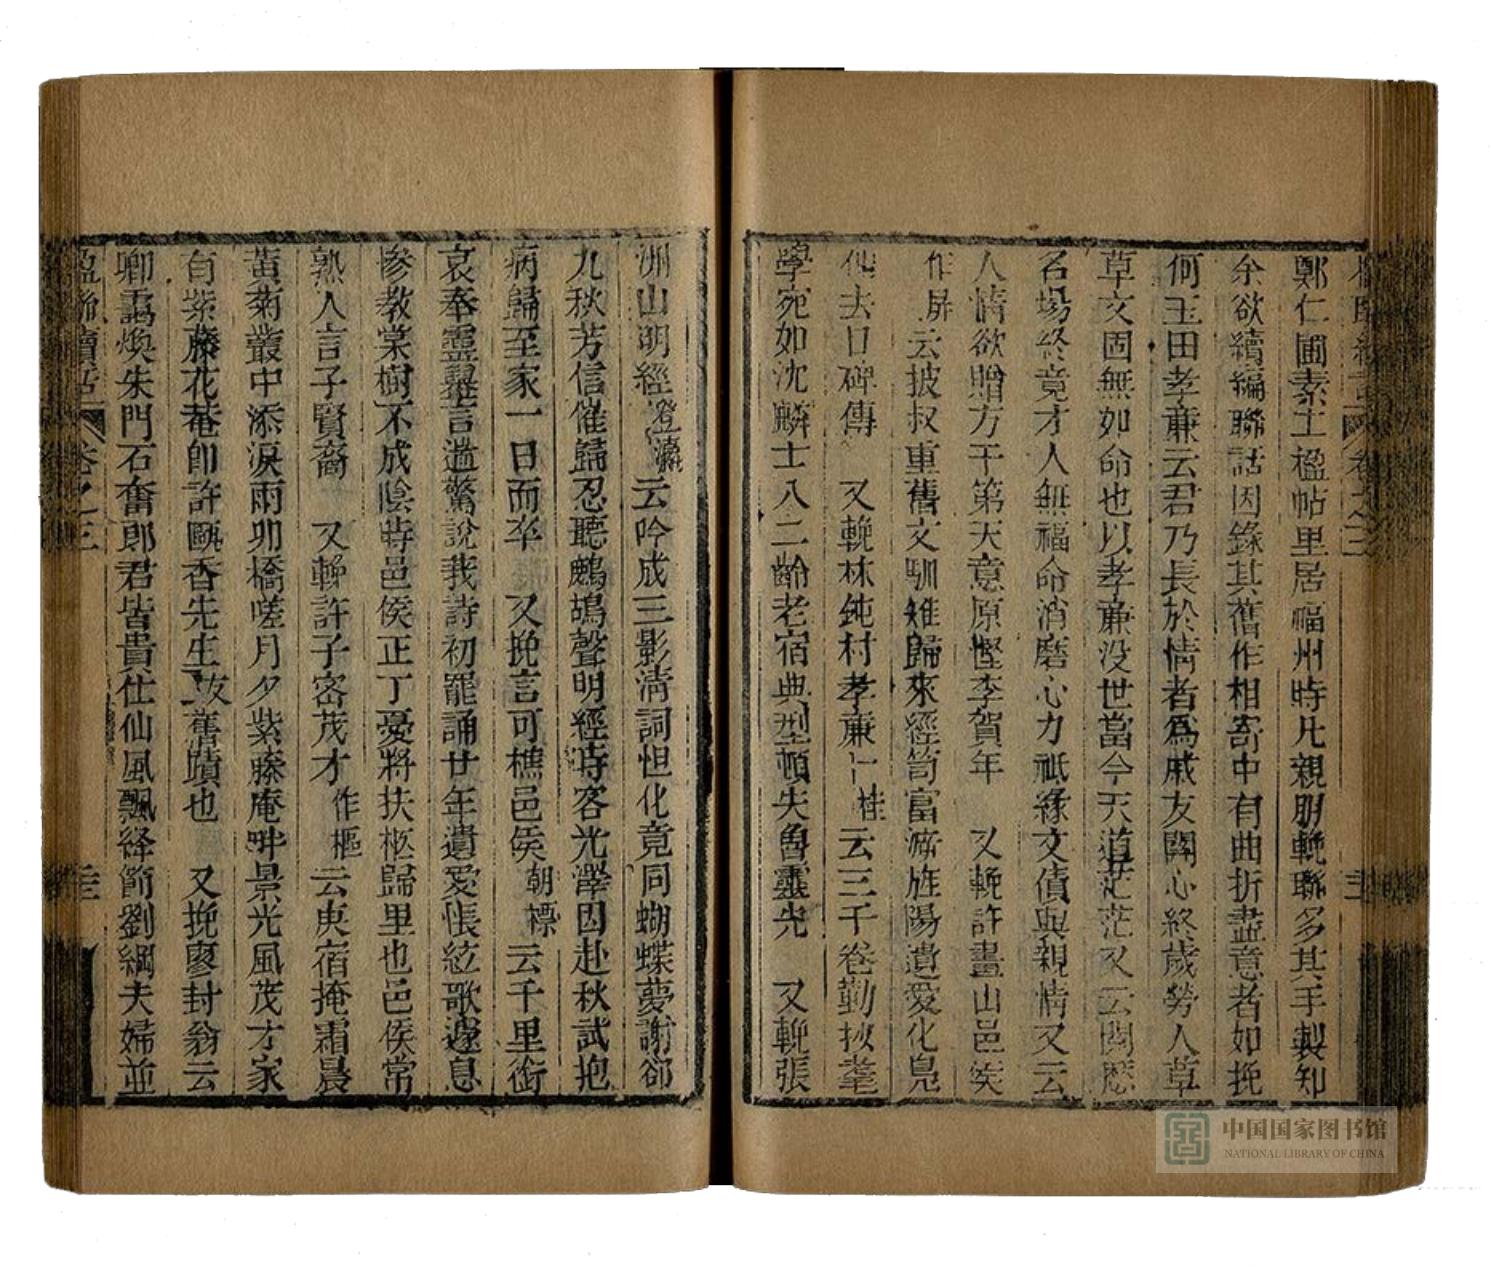 鄭仁圃素工楹帖里居福州時凡親朋輓聯多其手製知
余欲續編聯話因錄其舊作相寄中有曲折盡意者如挽
何玉田孝廉云君乃長於情者為戚友關心終歲勞人草
草文固無如命也以孝廉沒世當今天道茫茫又云閱歷
名場終竟才人無福命消磨心力祗緣文債與親情又云
人情欲贈方干第天意原慳李賀年　又輓許畫山邑侯
作屏云披叔重舊文馴雉歸來經笥富濟旌陽遺愛化鳧
仙去口碑傳　又輓林鈍村孝廉一桂云三千卷勤披羣
學宛如沈麟士八二齡老宿典型頓失魯靈光　又輓張
洲山明經登瀛云吟成三影清詞怛化竟同蝴蝶夢謝卻
九秋芳信催歸忍聽鷓鴣聲明經時客光澤因赴秋試抱
病歸至家一日而卒　又挽言可樵邑侯朝標云千里銜
哀奉靈轝言遄驚說我詩初罷誦廿年遺愛悵絃歌遽息
慘教棠樹不成陰時邑侯正丁憂將扶柩歸里也邑侯常
熟人言子賢裔　又輓許子密茂才作樞云庚宿掩霜晨
黃菊叢中添淚雨卯橋嗟月夕紫藤庵畔景光風茂才家
有紫藤花菴即許甌香先生故舊蹟也　又挽廖封翁云
卿靄煥朱門石奮郎君皆貴仕仙風飄絳節劉綱夫婦並
楹聯續話　卷之三
中国国家图书馆
NATIONAL LIBRARY OF CHINA